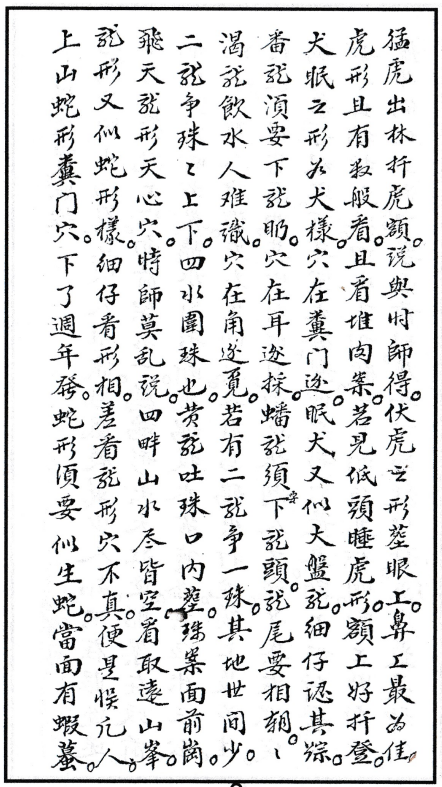 猛虎出林扦虎額。説與时師得。伏虎之形塟眼上。鼻上最為佳。
虎形且有数般看。且看堆肉案。若見低頭睡虎形。額上好扦登。
犬眠之形如犬樣。穴在糞门边。眠犬又似大盤龍。細仔認其踪。
番龍湏要下龍肋。穴在耳边採。蟠龍須下龍頭。龍尾要相朝。
渴龍飲水人难識。穴在角边覓。若有二龍争一珠。其地世间少。
二龍争珠〻上下。四水圍珠也。黄龍吐珠口内塟。珠案面前崗。
飛天龍形天心穴。時師莫乱説。四畔山水尽皆空。看取遠山峯。
龍形又似蛇形樣。細仔看形相。差看龍形穴不真。便是悮凢人。
上山蛇形糞门穴。下了週年發。蛇形須要似生蛇。當面有蝦蟇。